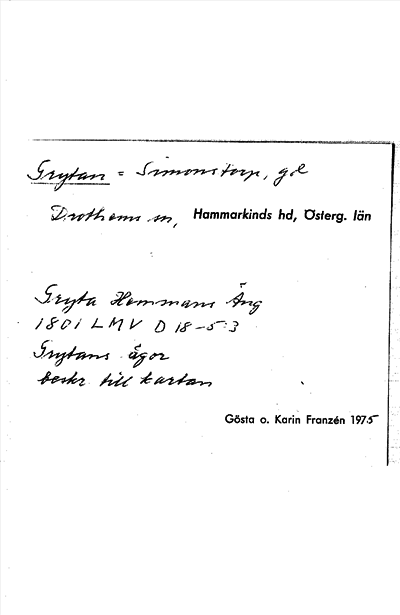 Grytan = Simonstorp, gd
Drothems sn, Hammarkinds hd, Österg. län
Gryta Hemmans Äng
1801 LMV D 18-5:3
Grytans ägor
beskr till kartan
Gösta o. Karin Franzén 1975